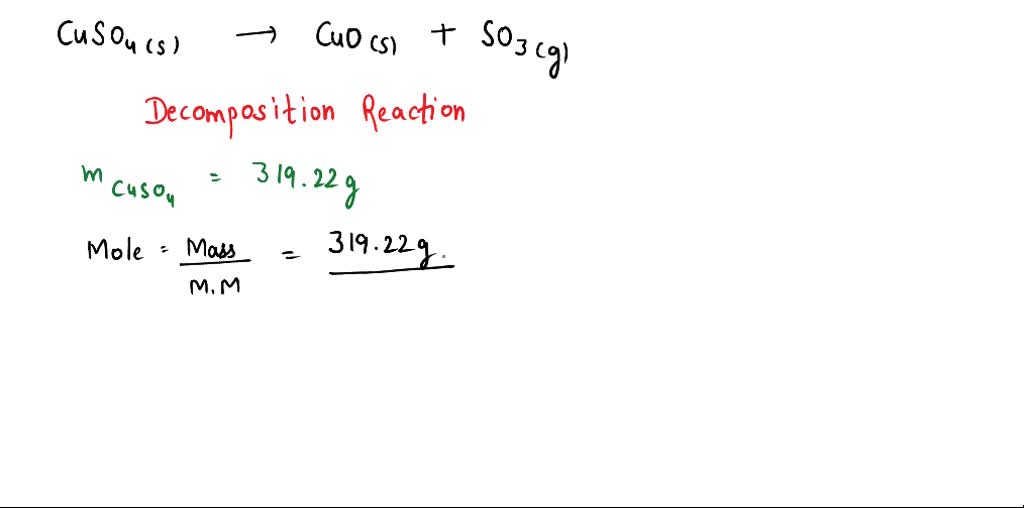 CuSO₄(s) → CuO(s) + SO₃(g)
Decomposition Reaction
m CuSO₄ = 319.22g
Mole = Mass / M.M = 319.22g